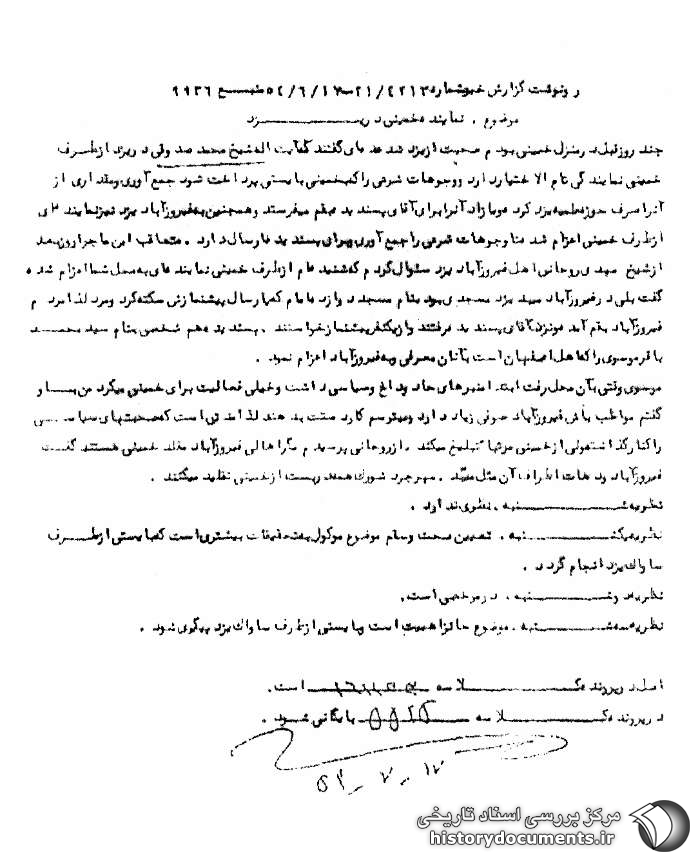 رونوشت گزارش خبر شماره 9936
موضوع . نماینده خمینی در یزد
چند روز قبل در منزل خمینی بودم صحبت از یزد شد عده ای گفتند که آیت اله شیخ محمد صدوقی در یزد از طرف
خمینی نمایندگی تام الاختیار دارد و وجوهات شرعی را که بخمینی بایستی پرداخت شود جمع آوری و مقداری از
آنرا صرف حوزه علمیه یزد کرده و مازاد آنرا برای آقای پسندیده بقم میفرستد و همچنین به فیروزآباد یزد نیز نماینده ای
از طرف خمینی اعزام شده تا وجوهات شرعی را جمع آوری و برای پسندیده ارسال دارد . متعاقب این ماجرا روز بعد
از شیخ مهدی روحانی اهل فیروزآباد یزد سئوال کردم که شنیده ام از طرف خمینی نماینده ای به محل شما اعزام شده
گفت بلی در فیروزآباد میبد یزد مسجدی بود بنام مسجد دوازده امام که پارسال پیشنمازش سکته کرد و مرد لذا مردم
فیروزآباد بقم آمدند و نزد آقای پسندیده رفتند و از یکنفر پیشنماز خواستند . پسندیده هم شخصی بنام سید محمد
باقر موسوی را که اهل اصفهان است بآنان معرفی و به فیروزآباد اعزام نمود .
موسوی وقتی بآن محل رفت ابتدا منبرهای حاد و داغ و سیاسی داشت و خیلی فعالیت برای خمینی میکرد من باو
گفتم مواظب باش فیروزآباد صوفی زیاد دارد و میترسم کار دستت بدهند لذا مدتی است که صحبتهای سیاسی
را کنار گذاشته ولی از خمینی مرتبا تبلیغ میکند . از روحانی پرسیدم مگر اهالی فیروزآباد مقلد خمینی هستند گفت
فیروزآباد و دهات اطراف آن مثل میبد . مهرجرد شورک همه دربست از خمینی تقلید میکنند .
نظریه شنبه . نظری ندارد .
نظریه یکشنبه . تعیین صحت و سقم موضوع موکول به تحقیقات بیشتری است که بایستی از طرف
ساواک یزد انجام گردد .
نظریه دوشنبه . در مرخصی است .
نظریه سه شنبه . موضوع حائز اهمیت است و بایستی از طرف ساواک یزد پیگیری شود .
اصل در پرونده کلاسه است .
در پرونده کلاسه بایگانی شود .
مرکز بررسی اسناد تاریخی
historydocuments.ir